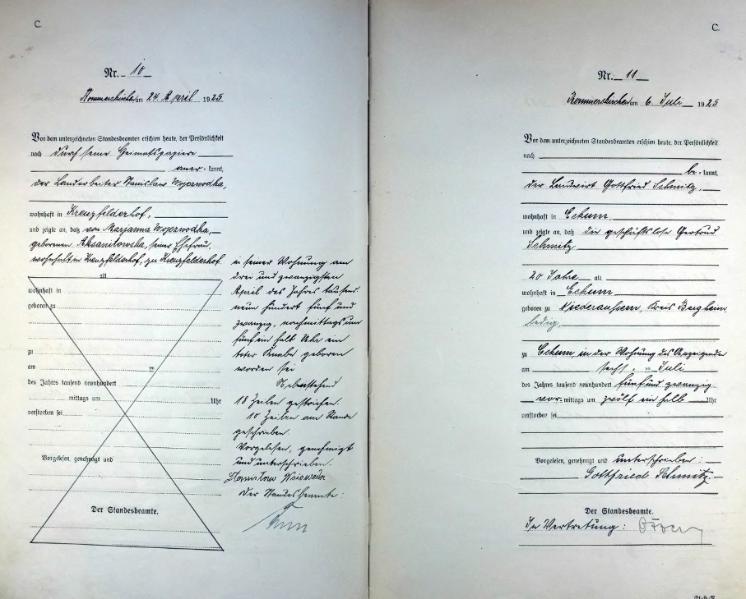 C.
Nr. 10
Rommerskirchen am 24. April 1925
Vor dem unterzeichneten Standesbeamten erschien heute, der Persönlichkeit
nach durch seine Heimatspapiere
anerkannt,
der Landarbeiter Stanislaus Wojewodka,
wohnhaft in Kreuzfelderhof,
und zeigte an, daß von Marzanna Wojewodka,
geborenen, seiner Ehefrau,
wohnhaft in Kreuzfelderhof, zu Kreuzfelderhof
alt
wohnhaft in
geboren zu
zu
am ten
des Jahres tausend neunhundert
mittags um Uhr
verstorben sei
Vorgelesen, genehmigt und
Der Standesbeamte.
in seiner Wohnung am
drei und zwanzigsten
April des Jahres tausend
neun hundert fünf und
zwanzig, nachmittags um
fünf ein halb Uhr ein
toter Knabe geboren
worden sei
Obenstehend
18 Zeilen gestrichen.
10 Zeilen am Rande
geschrieben.
Vorgelesen, genehmigt
und unterschrieben.
Der Standesbeamte:
C.
Nr. 11
Rommerskirchen am 6. Juli 1925
Vor dem unterzeichneten Standesbeamten erschien heute, der Persönlichkeit
nach
bekannt,
der Landwirt Gottfried Schmitz,
wohnhaft in Eckum,
und zeigte an, daß die geschäftslose Gertrud
Schmitz
20 Jahre alt
wohnhaft in Eckum
geboren zu Niederaussem, Kreis Bergheim
ledig,
zu Eckum in der Wohnung des Anzeigenden
am sechsten Juli
des Jahres tausend neunhundert fünfund zwanzig
vormittags um zwölf ein halb Uhr
verstorben sei
Vorgelesen, genehmigt und unterschrieben:
Gottfried Schmitz
Der Standesbeamte.
In Vertretung: